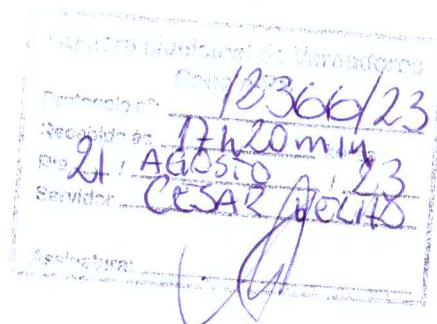 Câmara Municipal de Vereadores
Protocolo nº: 12366/23
Recebido às 17h20min
Dia 21 / AGOSTO / 23
Servidor CESAR
Assinatura: